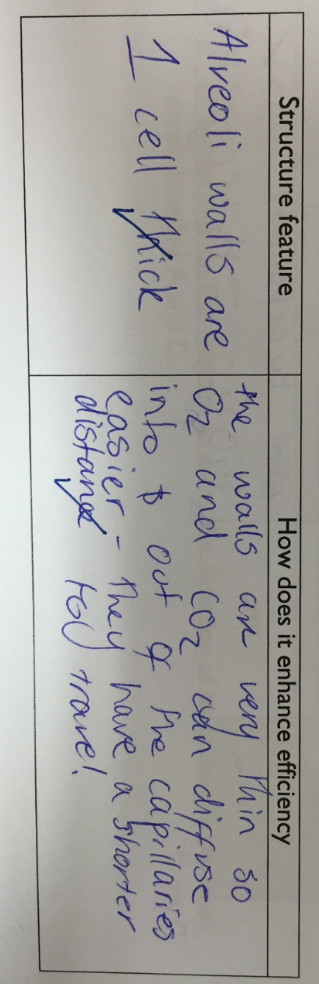 Structure feature
How does it enhance efficiency
Alveoli walls are
1 cell thick
the walls are very thin so
O₂ and CO₂ can diffuse
into & out of the capillaries
easier - they have a shorter
distance to travel